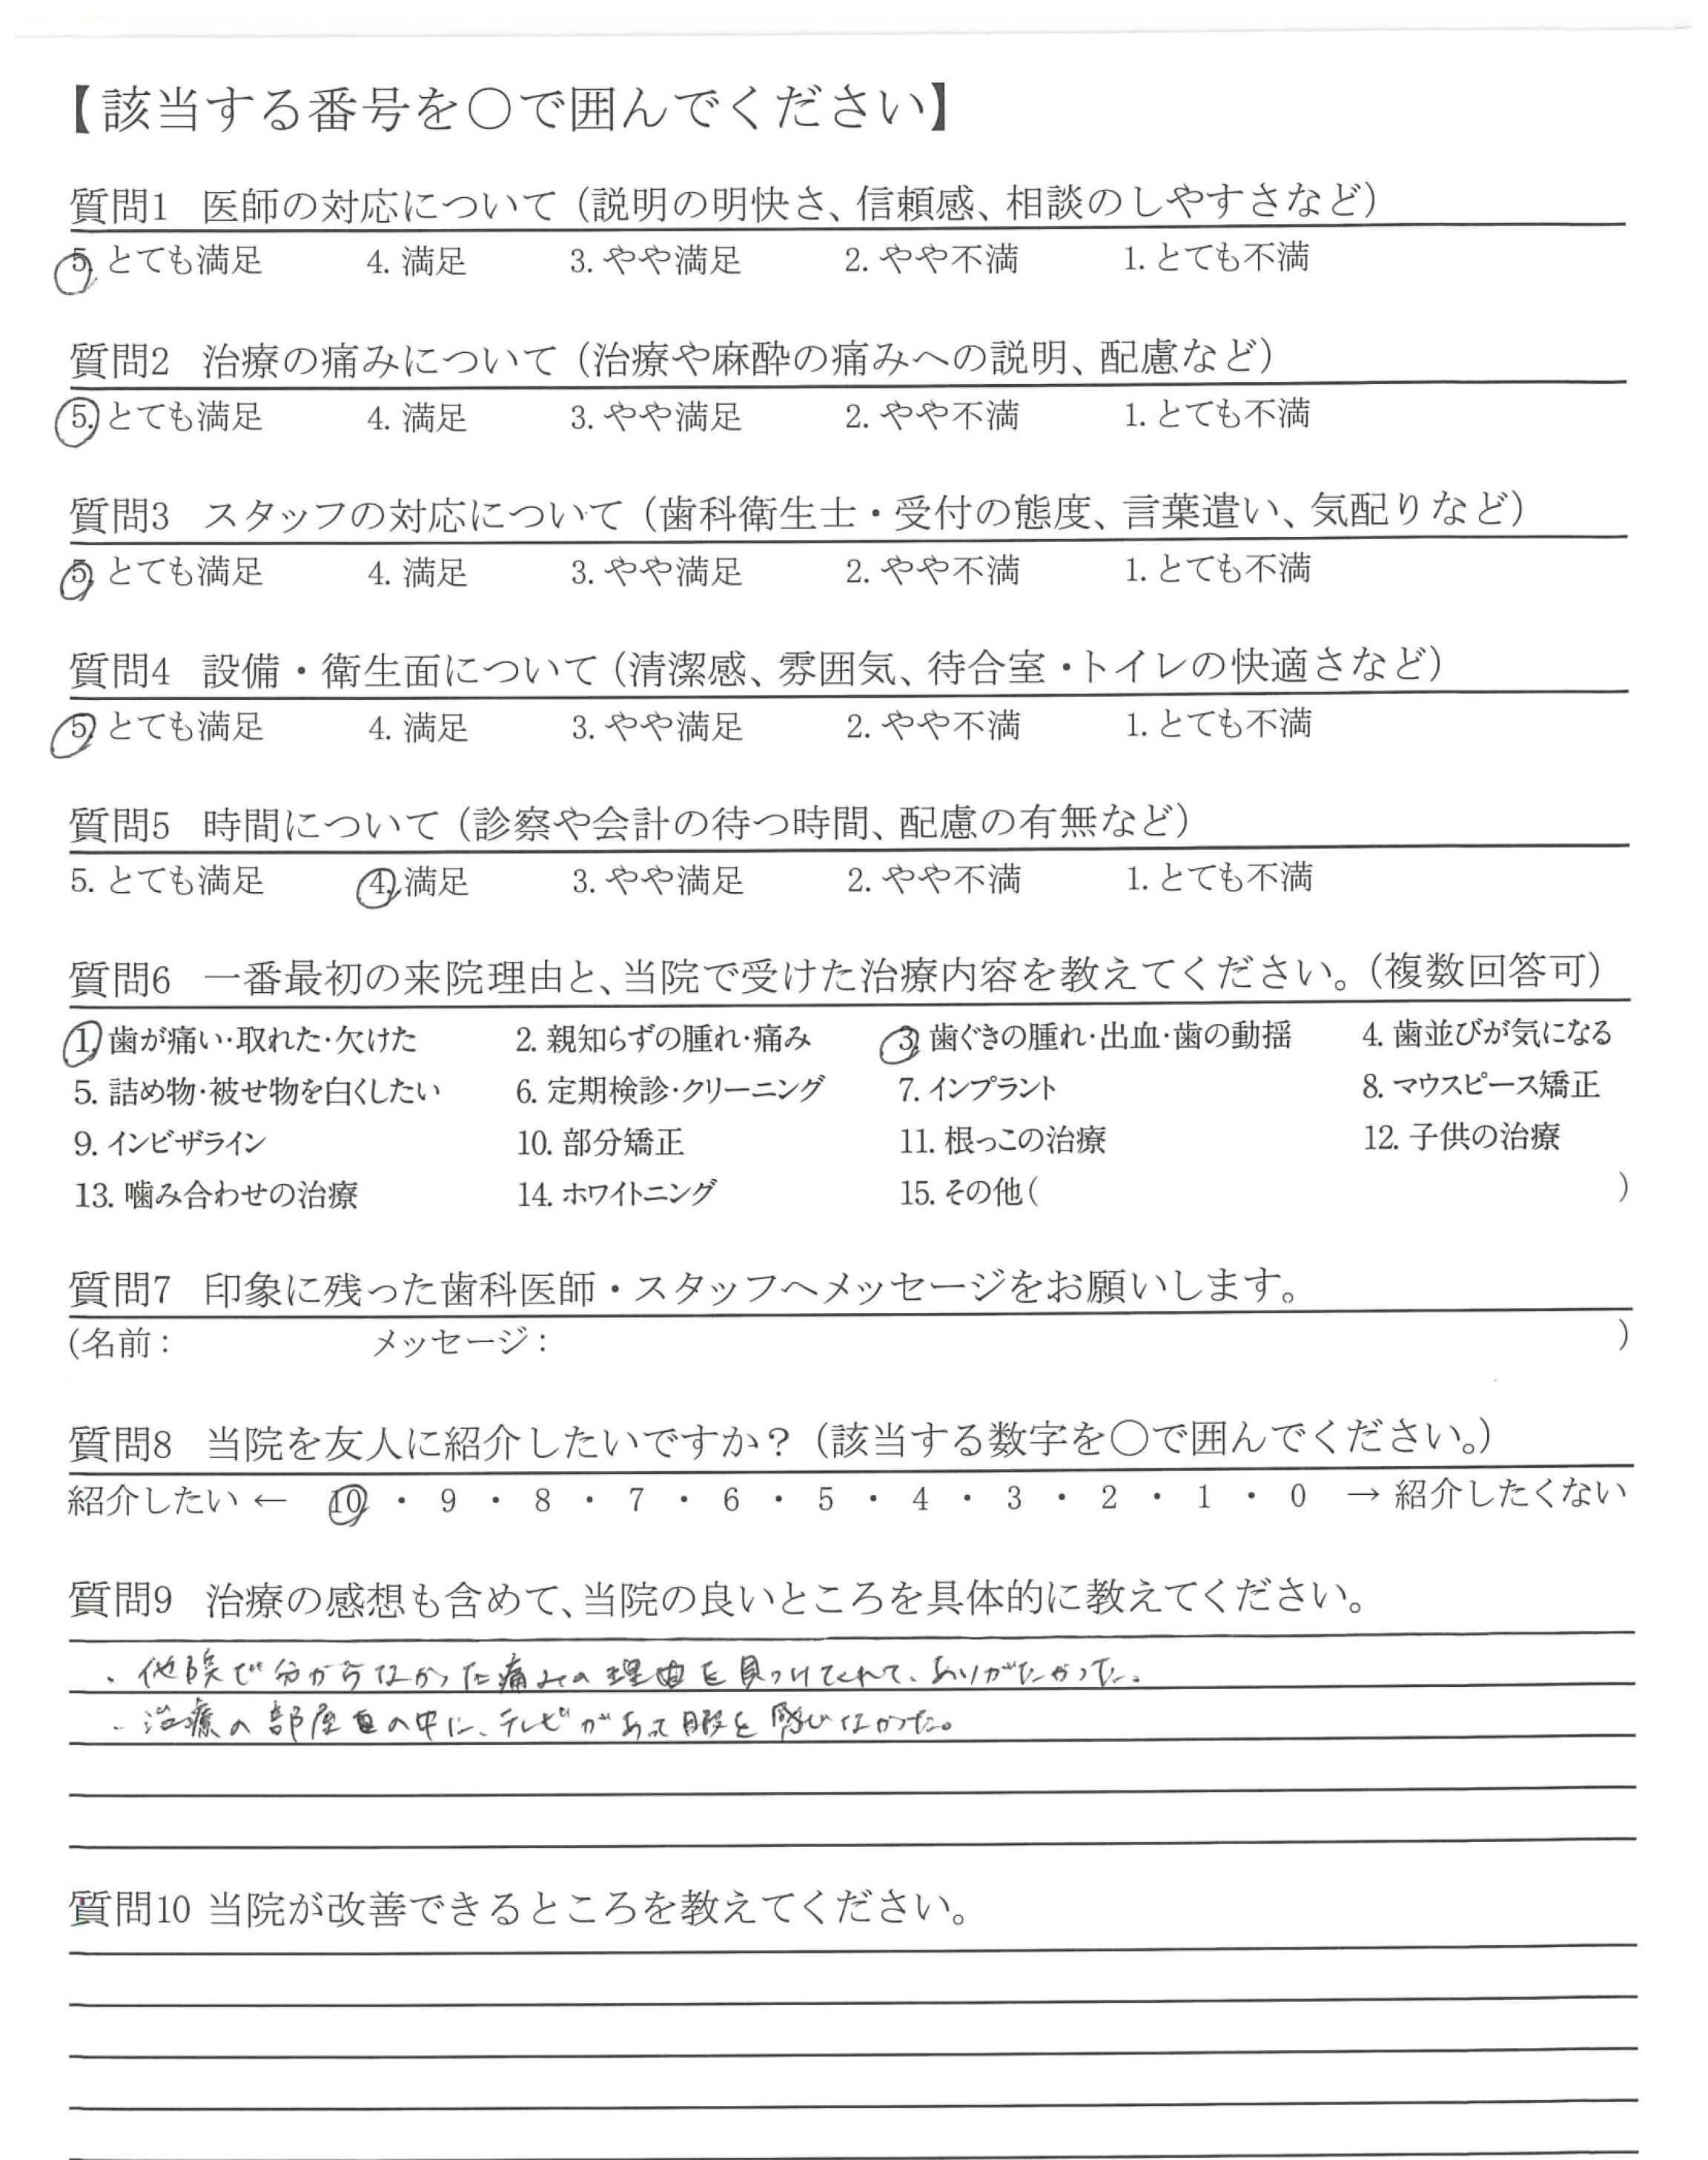 【該当する番号を〇で囲んでください】
質問1 医師の対応について（説明の明快さ、信頼感、相談のしやすさなど）
5. とても満足 4. 満足 3. やや満足 2. やや不満 1. とても不満
質問2 治療の痛みについて（治療や麻酔の痛みへの説明、配慮など）
5. とても満足 4. 満足 3. やや満足 2. やや不満 1. とても不満
質問3 スタッフの対応について（歯科衛生士・受付の態度、言葉遣い、気配りなど）
5. とても満足 4. 満足 3. やや満足 2. やや不満 1. とても不満
質問4 設備・衛生面について（清潔感、雰囲気、待合室・トイレの快適さなど）
5. とても満足 4. 満足 3. やや満足 2. やや不満 1. とても不満
質問5 時間について（診察や会計の待つ時間、配慮の有無など）
5. とても満足 4. 満足 3. やや満足 2. やや不満 1. とても不満
質問6 一番最初の来院理由と、当院で受けた治療内容を教えてください。（複数回答可）
1. 歯が痛い・取れた・欠けた 2. 親知らずの腫れ・痛み 3. 歯ぐきの腫れ・出血・歯の動揺 4. 歯並びが気になる
5. 詰め物・被せ物を白くしたい 6. 定期検診・クリーニング 7. インプラント 8. マウスピース矯正
9. インビザライン 10. 部分矯正 11. 根っこの治療 12. 子供の治療
13. 噛み合わせの治療 14. ホワイトニング 15. その他（ ）
質問7 印象に残った歯科医師・スタッフへメッセージをお願いします。
（名前： メッセージ： ）
質問8 当院を友人に紹介したいですか？（該当する数字を〇で囲んでください。）
紹介したい ← 10 ・ 9 ・ 8 ・ 7 ・ 6 ・ 5 ・ 4 ・ 3 ・ 2 ・ 1 ・ 0 → 紹介したくない
質問9 治療の感想も含めて、当院の良いところを具体的に教えてください。
・他院で分からなかった痛みの理由を見つけてくれて、ありがたかった。
・治療の部屋の中に、テレビがあって暇を感じなかった。
質問10 当院が改善できるところを教えてください。